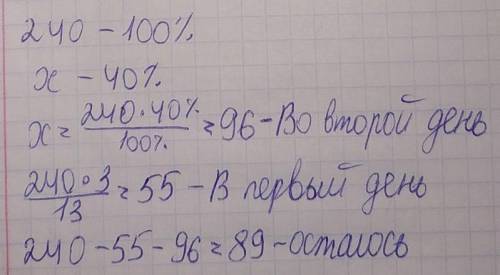 240 – 100%
x – 40%
x = 240·40% / 100% = 96 – Во второй день
240·3 / 13 = 55 – В первый день
240 – 55 – 96 = 89 – осталось